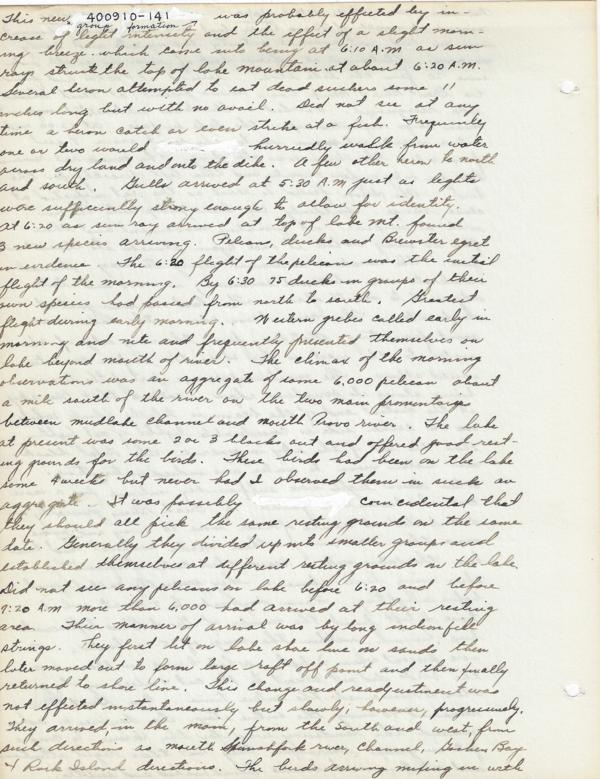 400910-141
This new group formation was probably effected by in-
crease of light intensity and the effect of a slight morn-
ing breeze which came into being at 6:10 A.M as sun
rays struck the top of lake mountain at about 6:20 A.M.
Several heron attempted to eat dead suckers some 11
inches long but with no avail. Did not see at any
time a heron catch or even strike at a fish. Frequently
one or two would hurriedly walk from water
across dry land and onto the dike. A few other heron to north
and south. Gulls arrived at 5:30 A.M just as lights
were sufficiently strong enough to allow for identity.
At 6:20 as sun ray arrived at top of lake Mt. found
3 new species arriving. Pelican, ducks and Brewster egret
in evidence. The 6:20 flight of the pelican was the initial
flight of the morning. By 6:30 75 ducks in groups of their
own species had passed from north to south. Greatest
flight during early morning. Western grebes called early in
morning and nite and frequently presented themselves on
lake beyond mouth of river. The climax of the morning
observations was an aggregate of some 6,000 pelican about
a mile south of the river on the two main promentaries
between mudlake channel and mouth Provo river. The lake
at present was some 2 or 3 blocks out and offered good rest-
ing grounds for the birds. These birds had been on the lake
some 4 weeks but never had I observed them in such an
aggregate. It was possibly coincidental that
they should all pick the same resting grounds on the same
date. Generally they divided up into smaller groups and
established themselves at different resting grounds on the lake.
Did not see any pelicans on lake before 6:20 and before
7:20 A.M more than 6,000 had arrived at their resting
area. Their manner of arrival was by long indian file
strings. They first lit on lake shore line on sands then
later moved out to form large raft off point and then finally
returned to shore line. This change and readjustment was
not effected instantaneously but slowly; however, progressively.
They arrived, in the main, from the south and west, from
such directions as mouth Spanish fork river, Channel, Goshen Bay
& Rock Island directions. The birds arriving mixing in with